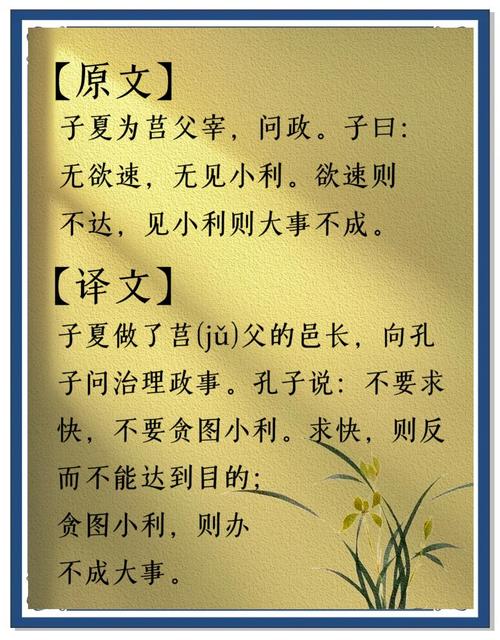 【原文】
子夏为莒父宰，问政。子曰：
无欲速，无见小利。欲速则
不达，见小利则大事不成。
【译文】
子夏做了莒(jǔ)父的邑长，向孔
子问治理政事。孔子说：不要求
快，不要贪图小利。求快，则反
而不能达到目的；
贪图小利，则办
不成大事。